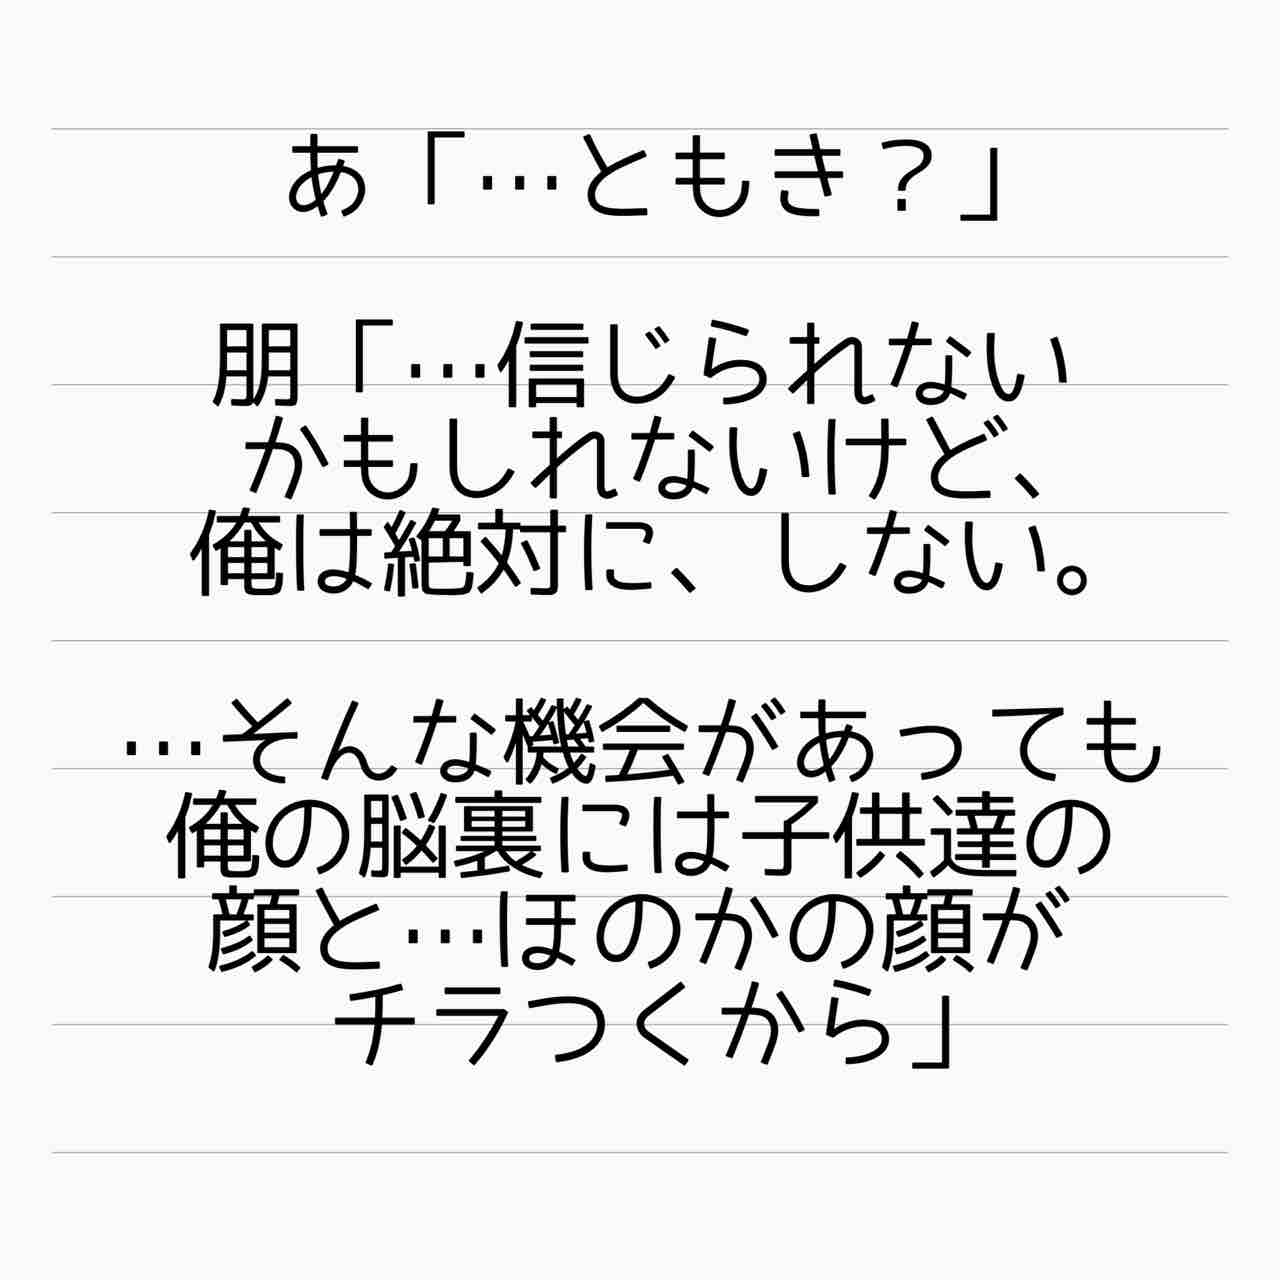 あ「…ともき？」
朋「…信じられない
かもしれないけど、
俺は絶対に、しない。
…そんな機会があっても
俺の脳裏には子供達の
顔と…ほのかの顔が
チラつくから」